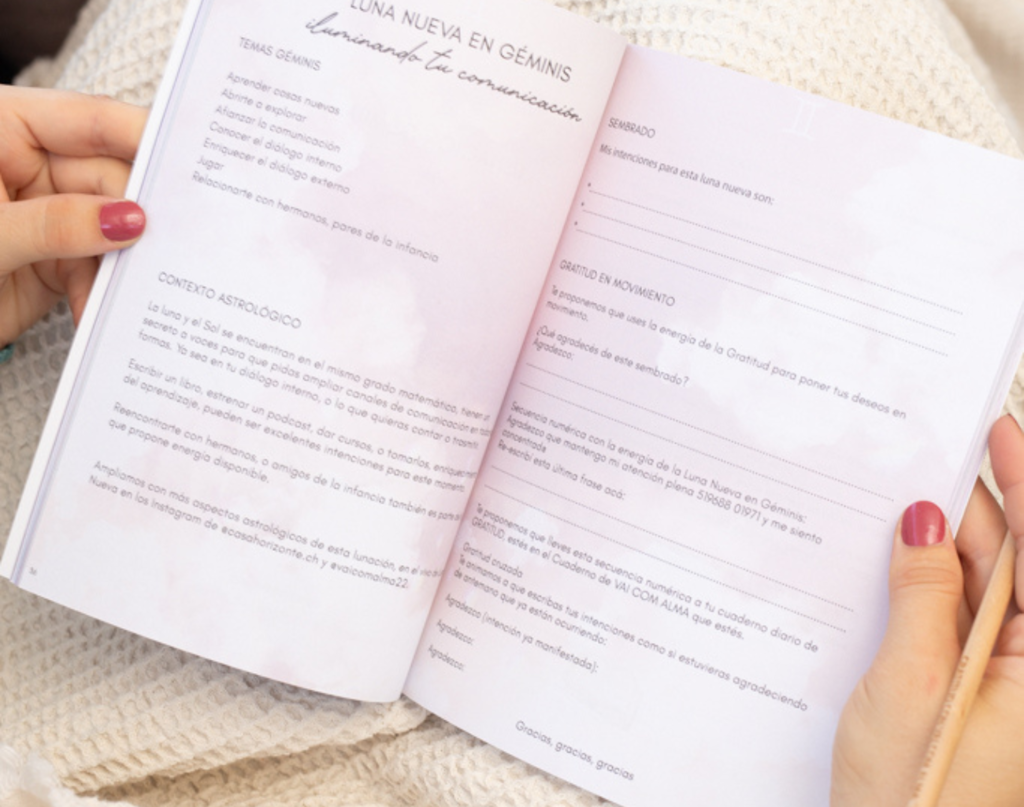 LUNA NUEVA EN GÉMINIS
iluminando tu comunicación
TEMAS GÉMINIS
Aprender cosas nuevas
Abrirte a explorar
Afianzar la comunicación
Conocer el diálogo interno
Enriquecer el diálogo externo
Jugar
Relacionarte con hermanos, pares de la infancia
CONTEXTO ASTROLÓGICO
La luna y el Sol se encuentran en el mismo grado matemático, tienen un
secreto a voces para que pidas ampliar canales de comunicación en
formas. Ya sea en tu diálogo interno, o lo que quieras contar o trasmitir
Escribir un libro, estrenar un podcast, dar cursos, o tomarlos,
del aprendizaje, pueden ser excelentes intenciones para este momento.
Reencontrarte con hermanos, o amigos de la infancia también es parte
que propone energía disponible.
Ampliamos con más aspectos astrológicos de esta lunación, en el
Nueva en los Instagram de @casahorizonte.ch y @vaicomalma22.
SEMBRADO
Mis intenciones para esta luna nueva son:
•
•
•
GRATITUD EN MOVIMIENTO
Te proponemos que uses la energía de la Gratitud para poner tus deseos en
movimiento.
¿Qué agradecés de este sembrado?
Agradezco:
Secuencia numérica con la energía de la Luna Nueva en Géminis:
Agradezco que mantengo mi atención plena 519688 01971 y me siento
concentrada
Re-escribí esta última frase acá:
Te proponemos que lleves esta secuencia numérica a tu cuaderno diario de
GRATITUD, estés en el Cuaderno de VAI COM ALMA que estés.
Gratitud cruzada
Te animamos a que escribas tus intenciones como si estuvieras agradeciendo
de antemano que ya están ocurriendo:
Agradezco (intención ya manifestada):
Agradezco:
Agradezco:
Gracias, gracias, gracias